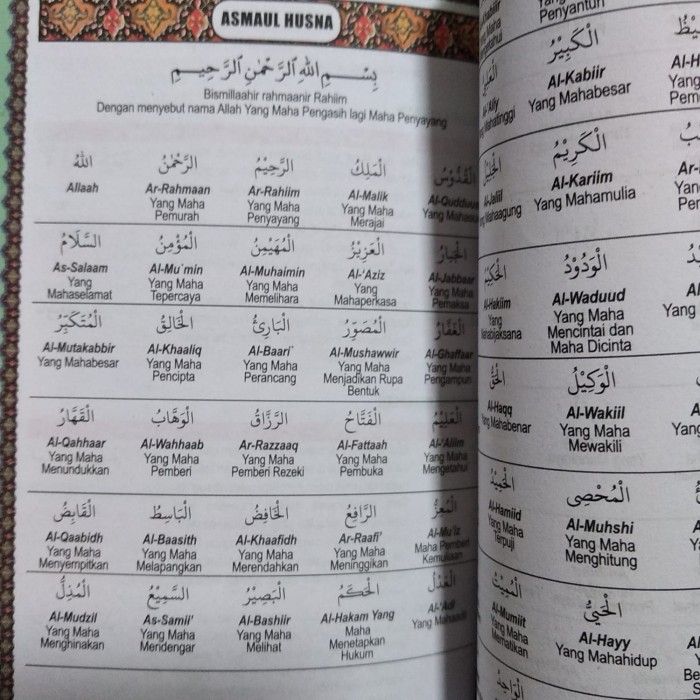 ASMAUL HUSNA
بِسْمِ اللهِ الرَّحْمٰنِ الرَّحِيْمِ
Bismillaahir rahmaanir Rahiim
Dengan menyebut nama Allah Yang Maha Pengasih lagi Maha Penyayang
اللهُ الرَّحْمٰنُ الرَّحِيْمُ الْمَلِكُ الْقُدُّوْسُ
Allaah Ar-Rahmaan Ar-Rahiim Al-Malik Al-Qudduus
Yang Maha Yang Maha Yang Maha
Pemurah Penyayang Merajai
السَّلَامُ الْمُؤْمِنُ الْمُهَيْمِنُ الْعَزِيْزُ الْجَبَّارُ
As-Salaam Al-Mu`min Al-Muhaimin Al-'Aziz Al-Jabbaar
Yang Yang Maha Yang Maha Yang Yang Maha
Mahaselamat Tepercaya Memelihara Mahaperkasa Pemaksa
الْمُتَكَبِّرُ الْخَالِقُ الْبَارِئُ الْمُصَوِّرُ الْغَفَّارُ
Al-Mutakabbir Al-Khaaliq Al-Baari` Al-Mushawwir Al-Ghaffaar
Yang Mahabesar Yang Maha Yang Maha Yang Maha Yang Maha
Pencipta Perancang Menjadikan Rupa Pengampun
Bentuk
الْقَهَّارُ الْوَهَّابُ الرَّزَّاقُ الْفَتَّاحُ الْعَلِيْمُ
Al-Qahhaar Al-Wahhaab Ar-Razzaaq Al-Fattaah Al-'Aliim
Yang Maha Yang Maha Yang Maha Yang Maha Yang Maha
Menundukkan Pemberi Pemberi Rezeki Pembuka Mengetahui
الْقَابِضُ الْبَاسِطُ الْخَافِضُ الرَّافِعُ الْمُعِزُّ
Al-Qaabidh Al-Baasith Al-Khaafidh Ar-Raafi' Al-Mu'iz
Yang Maha Yang Maha Yang Maha Yang Maha Maha Pemberi
Menyempitkan Melapangkan Merendahkan Meninggikan Kemuliaan
الْمُذِلُّ السَّمِيْعُ الْبَصِيْرُ الْحَكَمُ الْعَدْلُ
Al-Mudzil As-Samii' Al-Bashiir Al-Hakam Yang Al-'Adl
Yang Maha Yang Maha Yang Maha Maha
Menghinakan Mendengar Melihat Menetapkan
Hukum
Penyantun
الْكَبِيْرُ
Al-Kabiir
Yang Mahabesar
الْكَرِيْمُ
Al-Kariim
Yang Mahamulia
الْوَدُوْدُ
Al-Waduud
Yang Maha
Mencintai dan
Maha Dicinta
الْحَقُّ الْوَكِيْلُ
Al-Haqq Al-Wakiil
Yang Maha
Mewakili
الْمُحْصِى
Al-Hamiid Al-Muhshi
Yang Maha Yang Maha
Terpuji Menghitung
الْحَيُّ
Al-Mumiit Al-Hayy
Yang Maha Yang Mahahidup
Mematikan